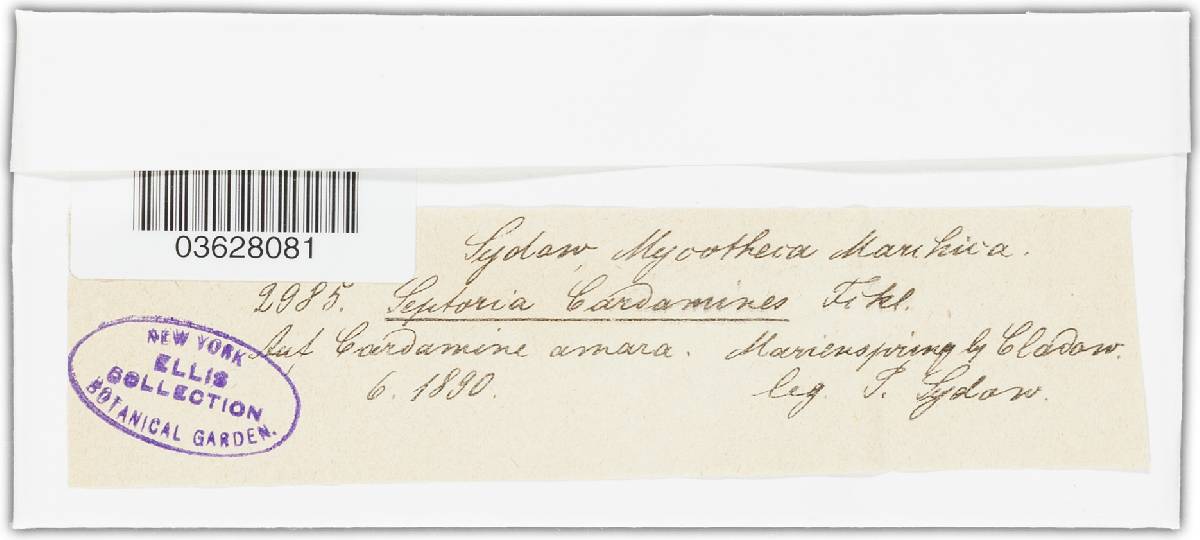 03628081
Sydow, Mycotheca Marchica.
2985. Septoria Cardamines Fckl.
Auf Cardamine amara. Marienspring b. Cladow.
6. 1890. leg. P. Sydow.
NEW YORK
ELLIS
COLLECTION
BOTANICAL GARDEN.